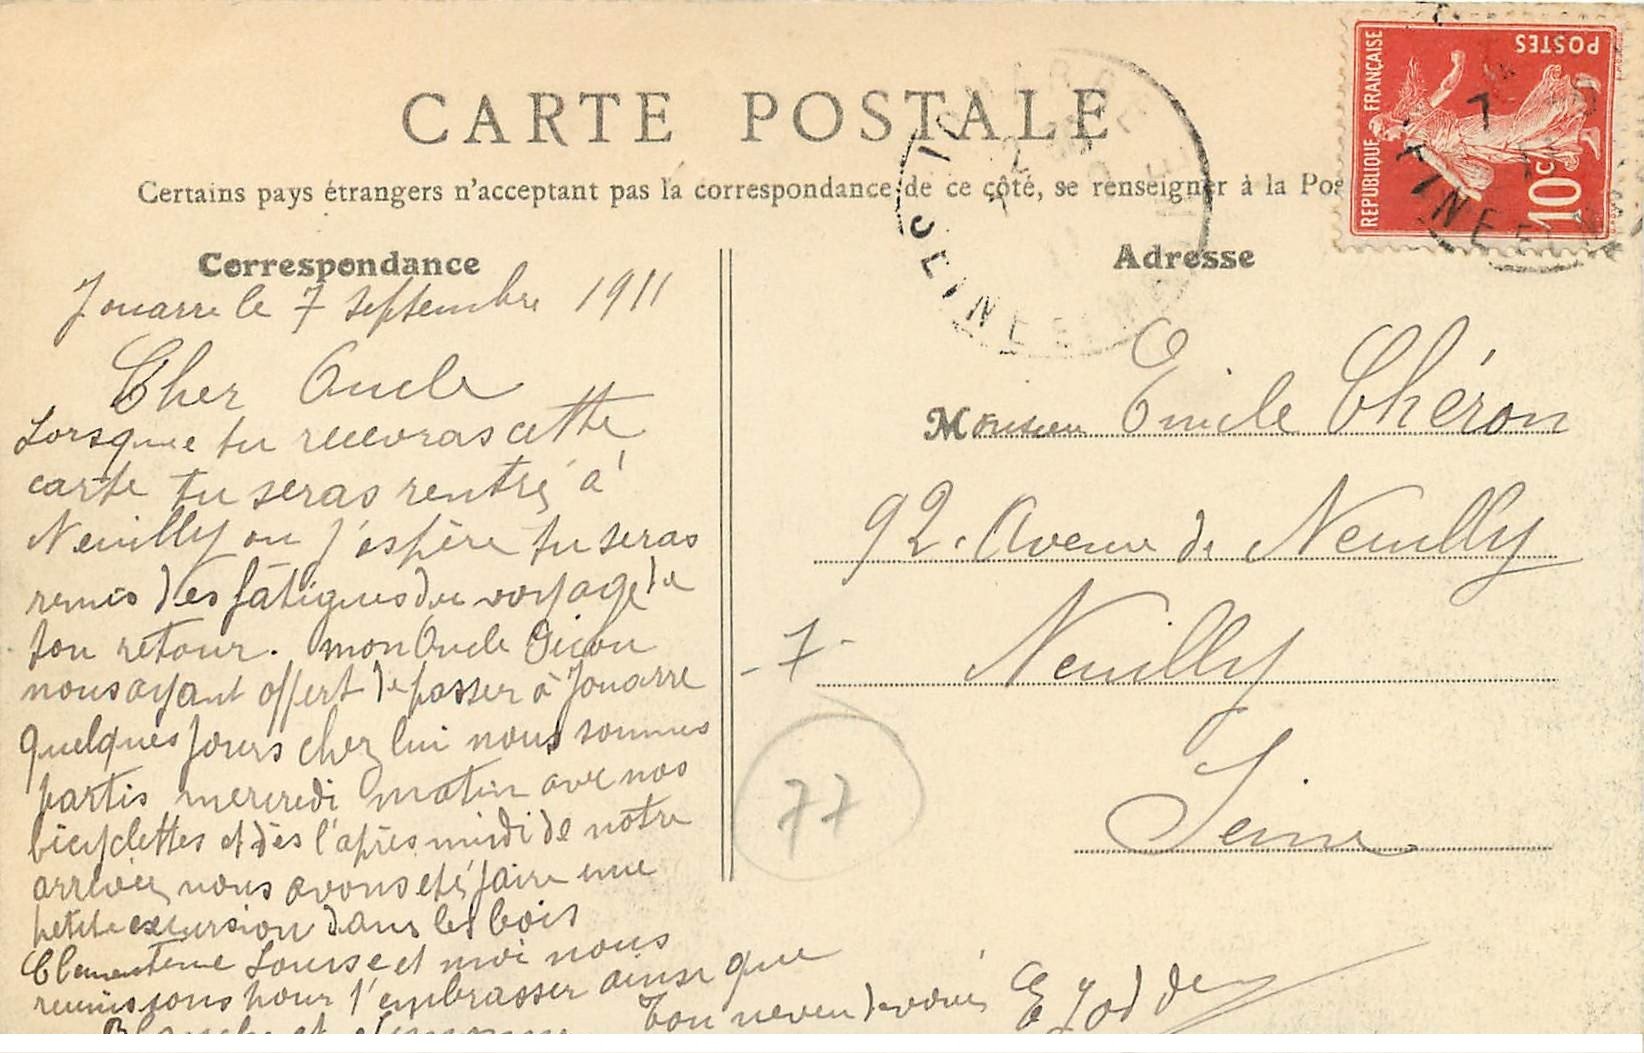 CARTE POSTALE
Certains pays étrangers n'acceptant pas la correspondance de ce côté, se renseigner à la Pos
REPUBLIQUE FRANÇAISE
POSTES
10c
Correspondance
Jouarre le 7 septembre 1911
Cher Oncle
Lorsque tu recevras cette
carte tu seras rentré à
Neuilly ou j'espère tu seras
remis des fatigues du voyage de
ton retour. mon Oncle
nous ayant offert de passer à Jouarre
quelques jours chez lui nous sommes
partis mercredi matin avec nos
bicyclettes et dès l'après midi de notre
arrivée, nous avons été faire une
petite excursion dans les bois
Clementine Louise et moi nous
reunissons pour t'embrasser ainsi que
Blanche et
Ton neveu dévoué
Adresse
Monsieur Emile Chéron
92. Avenue de Neuilly
Neuilly
Seine
-7-
77